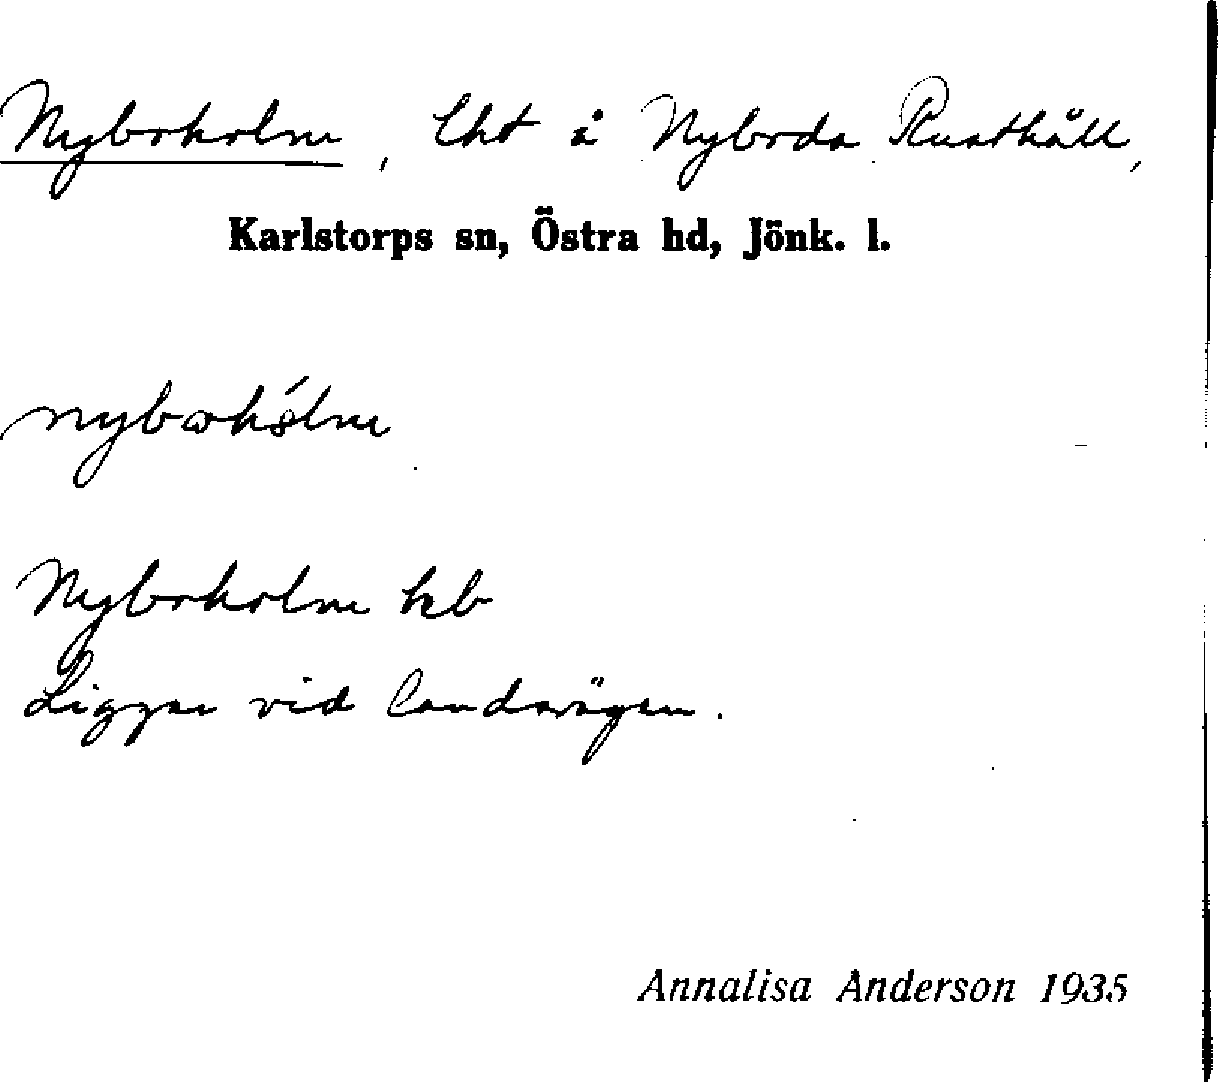 Nyboholm, lht å Nyboda Rusthåll,
Karlstorps sn, Östra hd, Jönk. l.
Nyboholm kb
Ligger vid landsvägen.
Annalisa Anderson 1935